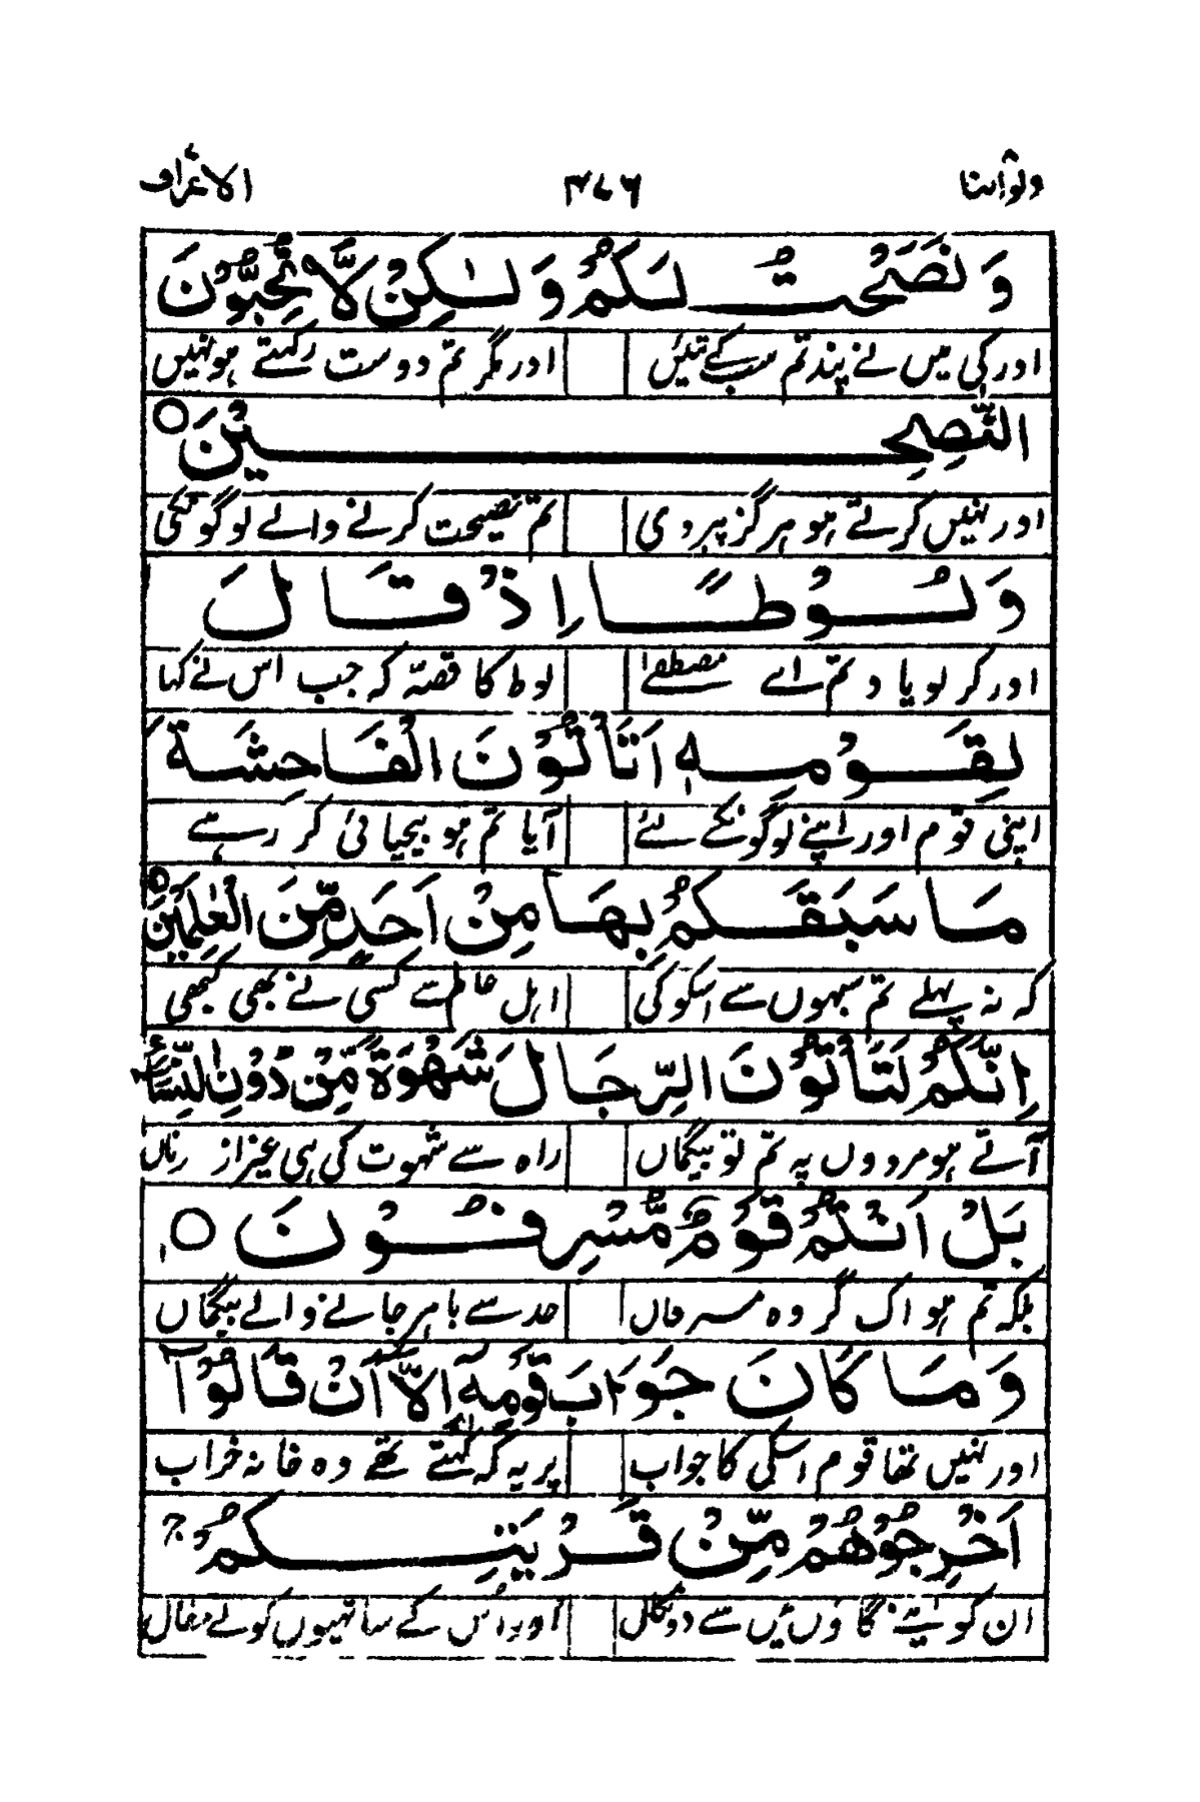 ولواننا ۴۷۶ الاعراف
وَنَصَحْتُ لَكُمْ وَلٰكِنْ لَّا تُحِبُّوْنَ
اور کی میں نے پند تم سب کے تئیں اور مگر تم دوست رکہتے ہو نہیں
النّٰصِحِيْنَ ○
اور نہیں کرتے ہو ہرگز پیروی تم نصیحت کرنے والے لوگونکی
وَلُوْطًا اِذْ قَالَ
اور کر لو یاد تم اے مصطفےٰ لوط کا قصّہ کہ جب اس نے کہا
لِقَوْمِهٖ اَتَاْتُوْنَ الْفَاحِشَةَ
اپنی قوم اور اپنے لوگونکے لئے آیا تم ہو بیحیائی کر رہے
مَا سَبَقَكُمْ بِهَا مِنْ اَحَدٍ مِّنَ الْعٰلَمِيْنَ ○
کہ نہ پہلے تم سبہوں سے اسکو کی اہل عالم سے کسی نے بھی کبھی
اِنَّكُمْ لَتَاْتُوْنَ الرِّجَالَ شَهْوَةً مِّنْ دُوْنِ النِّسَآءِ
آتے ہو مردوں پہ تم تو بیگماں راہ سے شہوت کی ہی غیر از زناں
بَلْ اَنْتُمْ قَوْمٌ مُّسْرِفُوْنَ ○
بلکہ تم ہو اک گروہ مسرفاں حد سے باہر جانے والے بیگماں
وَمَا كَانَ جَوَابَ قَوْمِهٖٓ اِلَّآ اَنْ قَالُوْٓا
اور نہیں تھا قوم اسکی کا جواب پر یہ کہ کہتے تھے وہ خانہ خراب
اَخْرِجُوْهُمْ مِّنْ قَرْيَتِكُمْ ج
ان کو اپنے گاؤں میں سے دو نکال اور اُس کے ساتھیوں کو بے